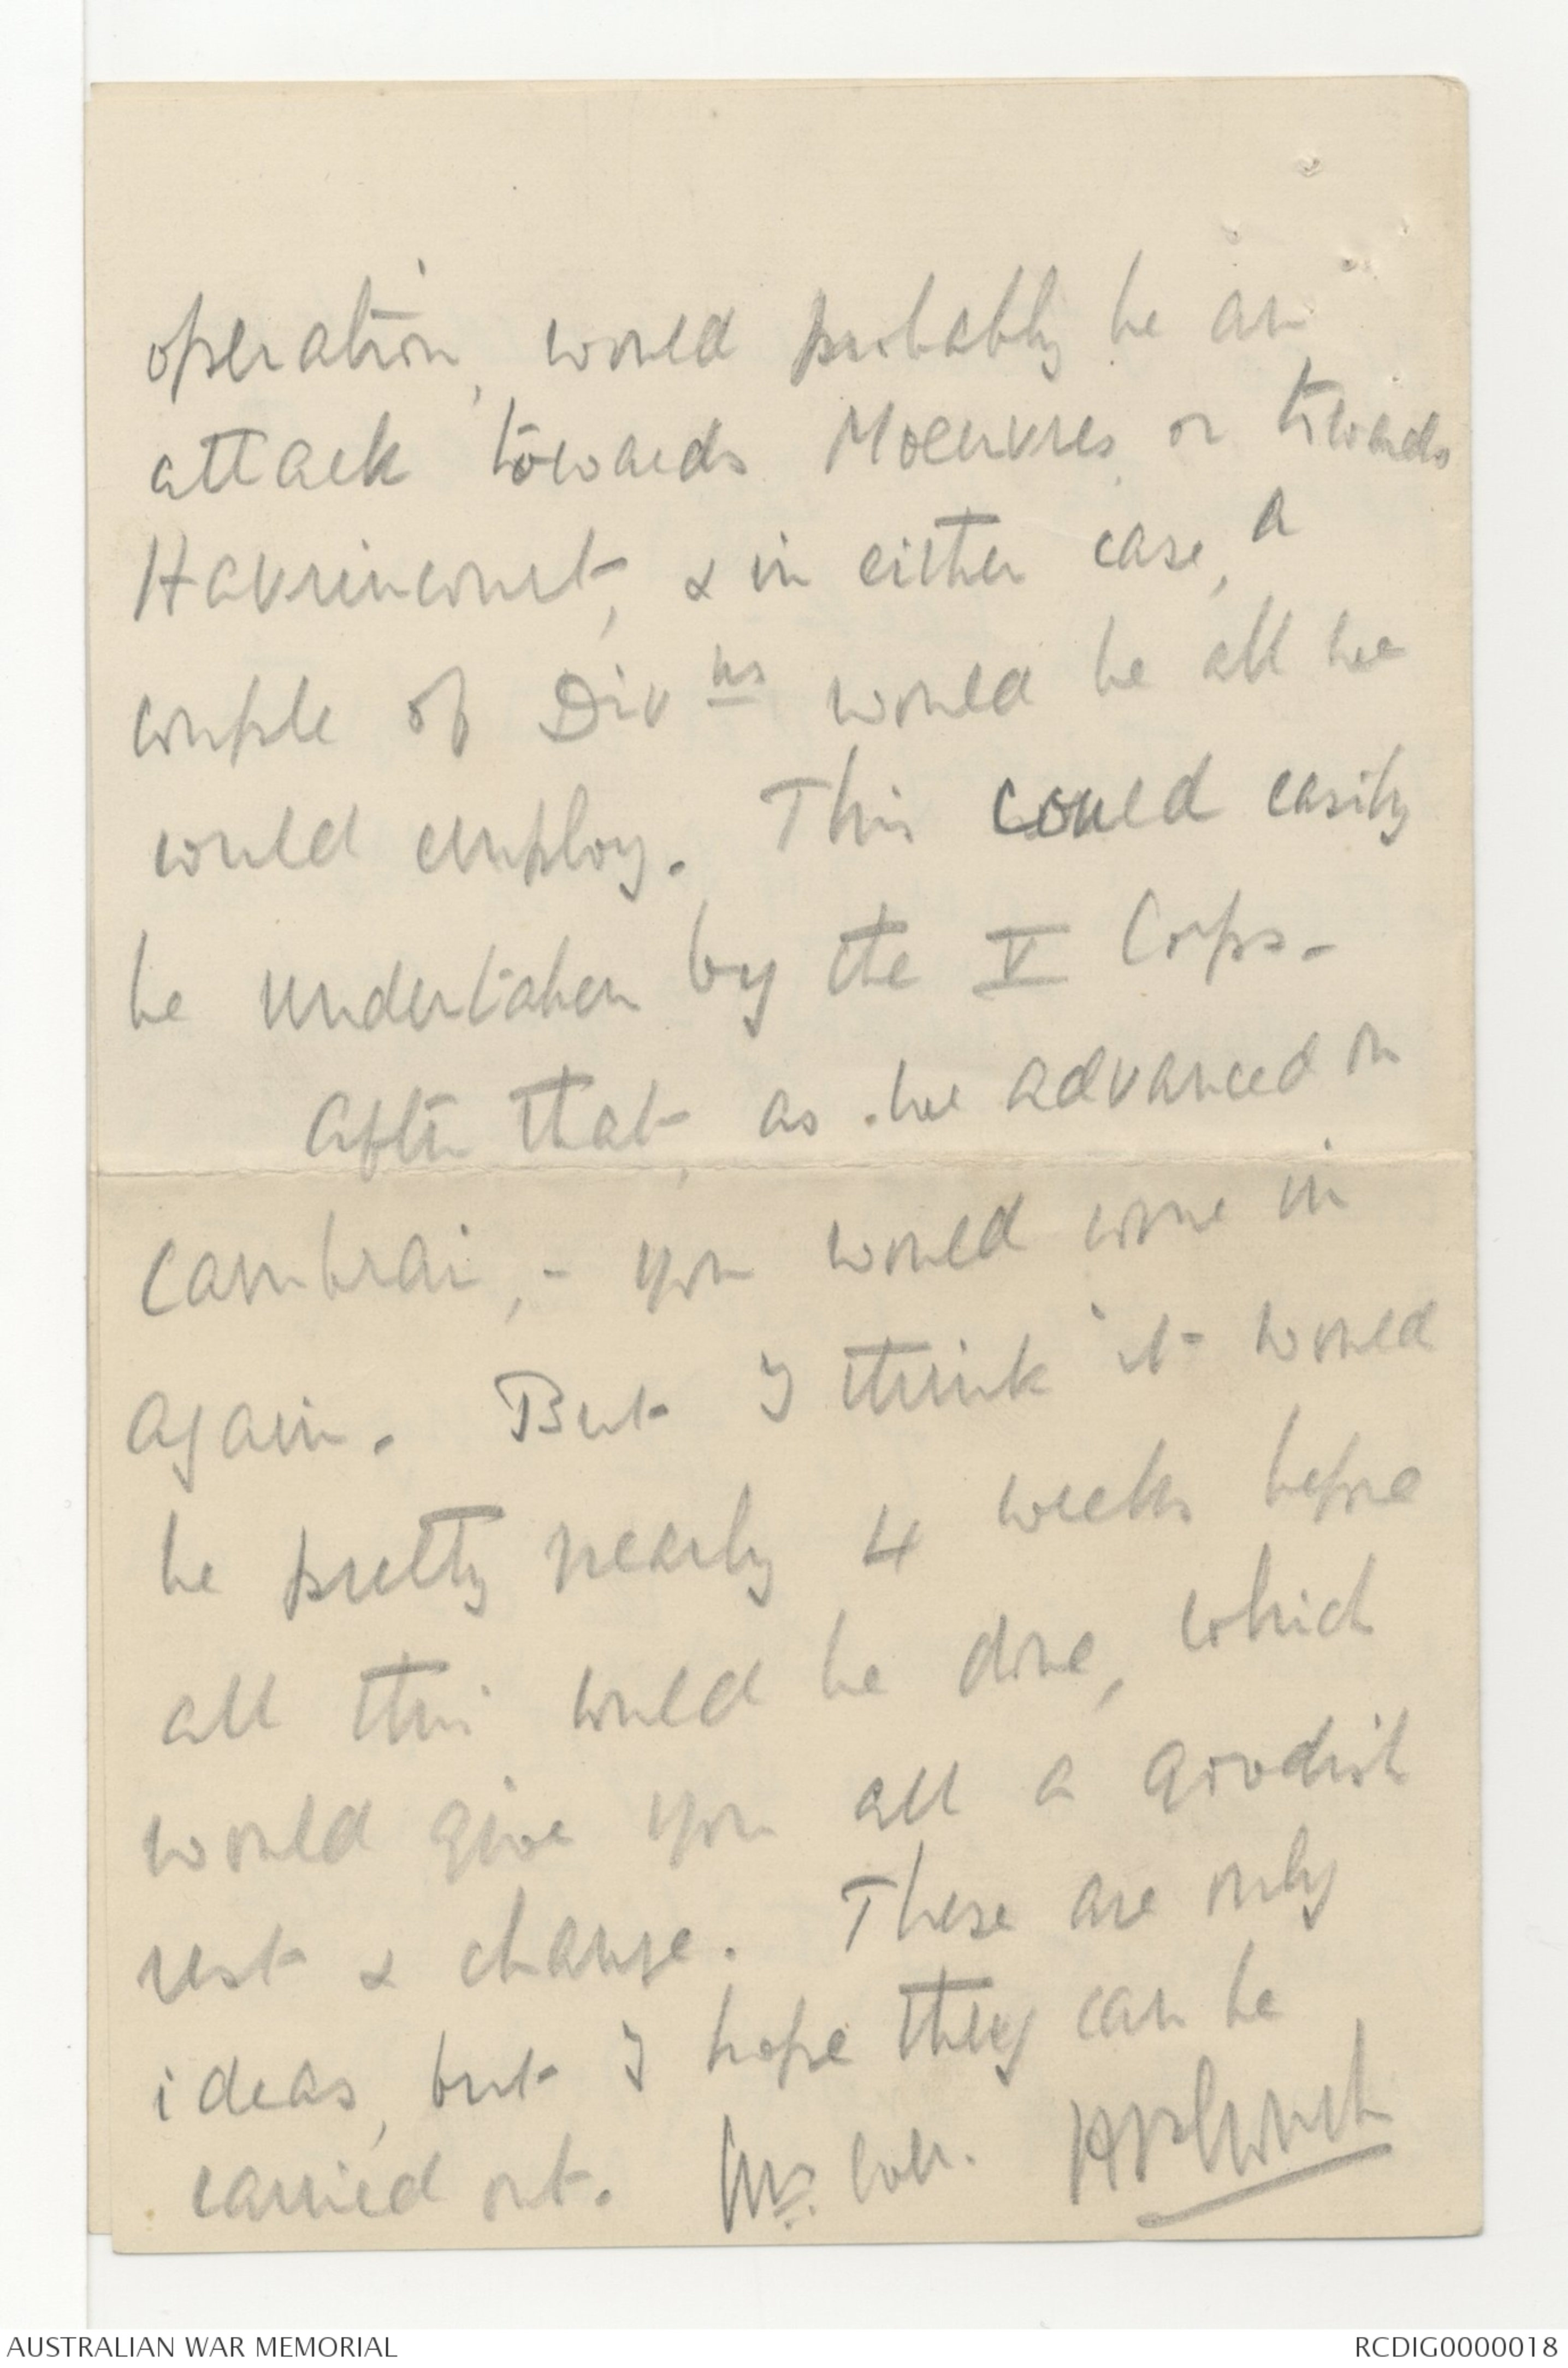 operation, would probably be an
attack towards Moeuvres or towards
Havrincourt, & in either case, a
couple of Divns would be all we
would employ. This could easily
be undertaken by the V Corps.
After that, as we advanced on
Cambrai, - you would come in
again. But I think it would
be pretty nearly 4 weeks before
all this could be done, which
would give you all a goodish
rest & change. These are only
ideas, but I hope they can be
carried out. Yrs.
AUSTRALIAN WAR MEMORIAL RCDIG0000018